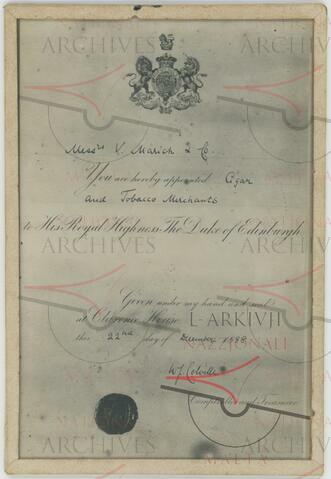 ARCHIVES
Messrs V. Marich & Co.
You are hereby appointed Cigar
and Tobacco Merchants
to His Royal Highness The Duke of Edinburgh
Given under my hand and seal
at Clarence House
L-ARKIVJI
this 22nd day of December 1888
NAZZJONALI
W. J. Colville
Comptroller and Treasurer
ARCHIVES
MALTA